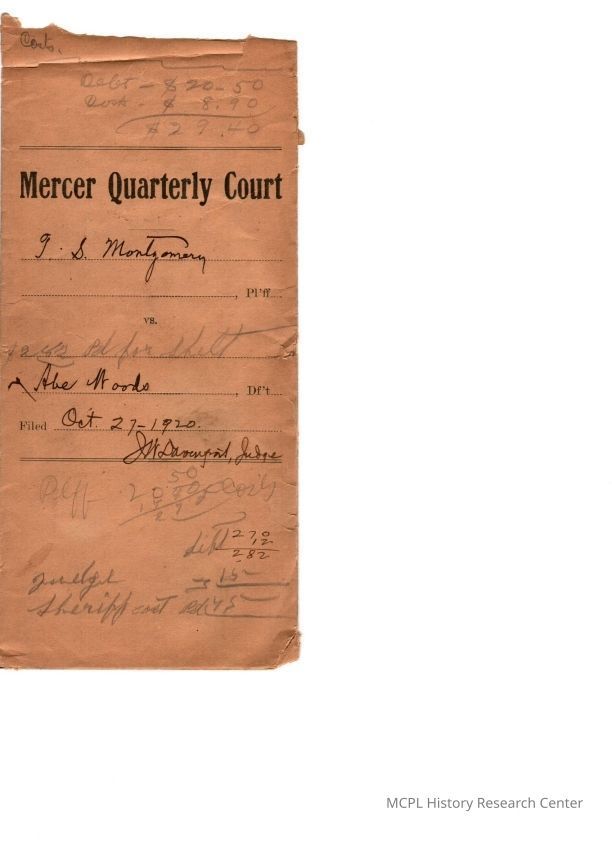 Costs.
Debt - $20.50
Cost - $ 8.90
$29.40
Mercer Quarterly Court
T. S. Montgomery
, Pl'ff
vs.
Pd for
Abe Woods , Df't
Filed Oct. 27-1920.
J W Davenport, Judge
50
Plff
270
12
282
15
Sheriff cost Pd
MCPL History Research Center